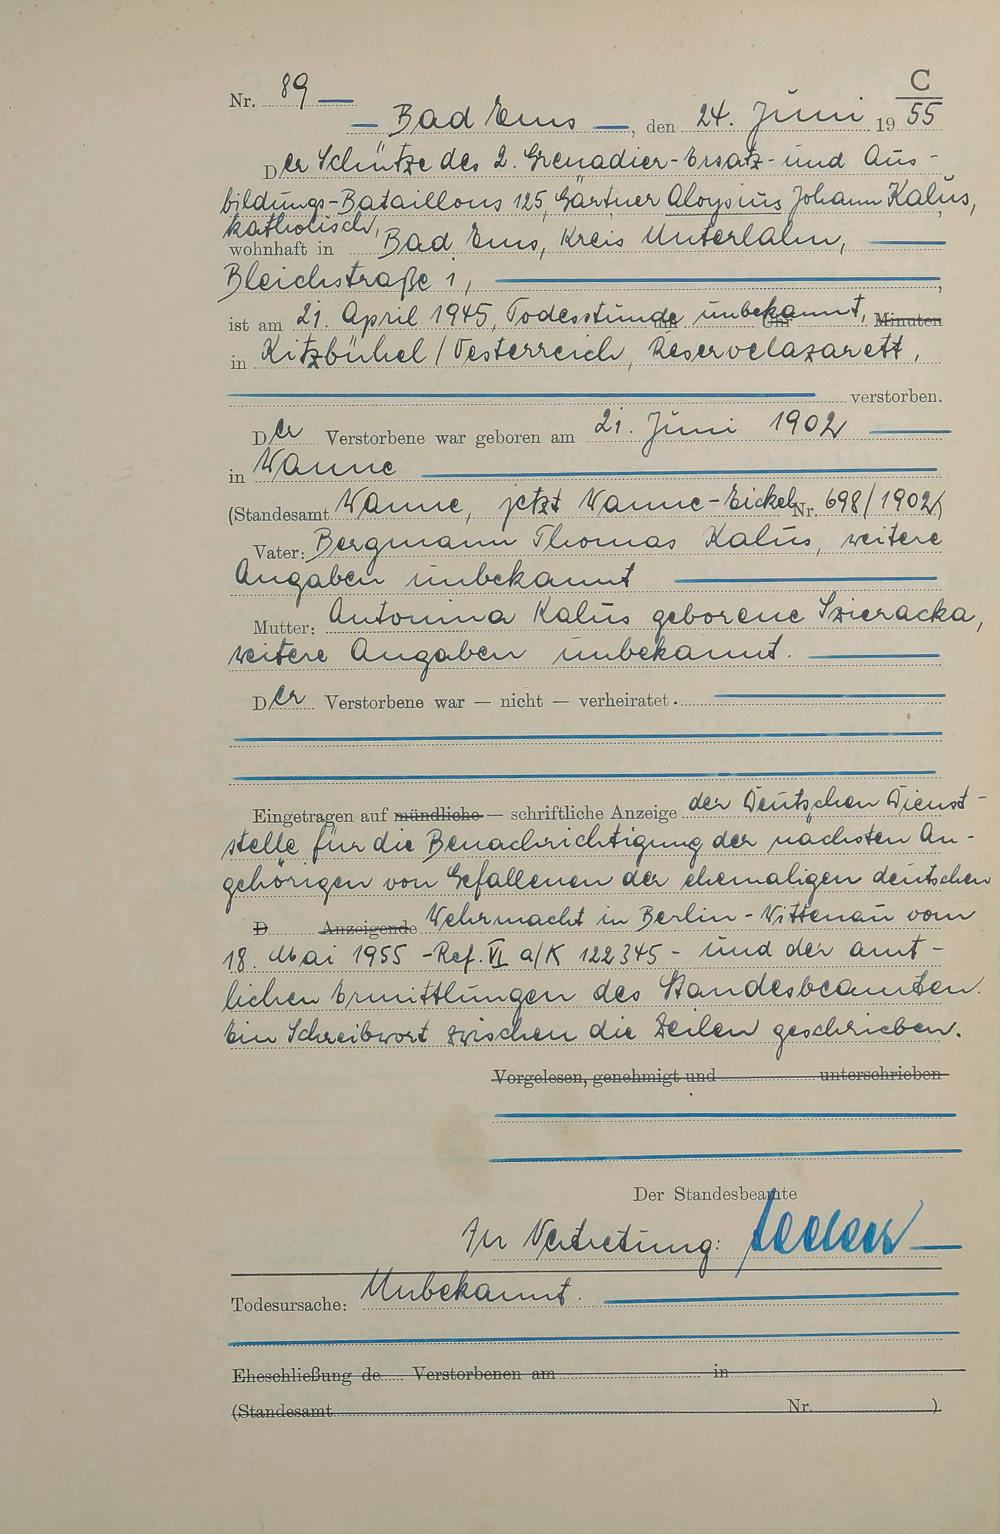 C
Nr. 89
Bad Ems, den 24. Juni 1955
Der Schütze des 2. Grenadier-Ersatz- und Aus-
bildungs-Bataillons 125, Gärtner Aloysius Johann Kalus,
katholisch,
wohnhaft in Bad Ems, Kreis Unterlahn,
Bleichstraße 1,
ist am 21. April 1945, Todesstunde unbekannt, um Uhr Minuten
in Kitzbühel/Oesterreich, Reservelazarett,
verstorben.
Der Verstorbene war geboren am 21. Juni 1902
in Wanne
(Standesamt Wanne, jetzt Wanne-Eickel Nr. 698/1902)
Vater: Bergmann Thomas Kalus, weitere
Angaben unbekannt
Mutter: Antonina Kalus geborene Szieracka,
weitere Angaben unbekannt.
Der Verstorbene war — nicht — verheiratet.
Eingetragen auf mündliche — schriftliche Anzeige der Deutschen Dienst-
stelle für die Benachrichtigung der nächsten An-
gehörigen von Gefallenen der ehemaligen deutschen
D Anzeigende Wehrmacht in Berlin-Wittenau vom
18. Mai 1955 -Ref. VI a/K 122345- und der amt-
lichen Ermittlungen des Standesbeamten.
Ein Schreibwort zwischen die Zeilen geschrieben.
Vorgelesen, genehmigt und unterschrieben
Der Standesbeamte
In Vertretung:
Todesursache: Unbekannt.
Eheschließung de Verstorbenen am in
(Standesamt Nr. )